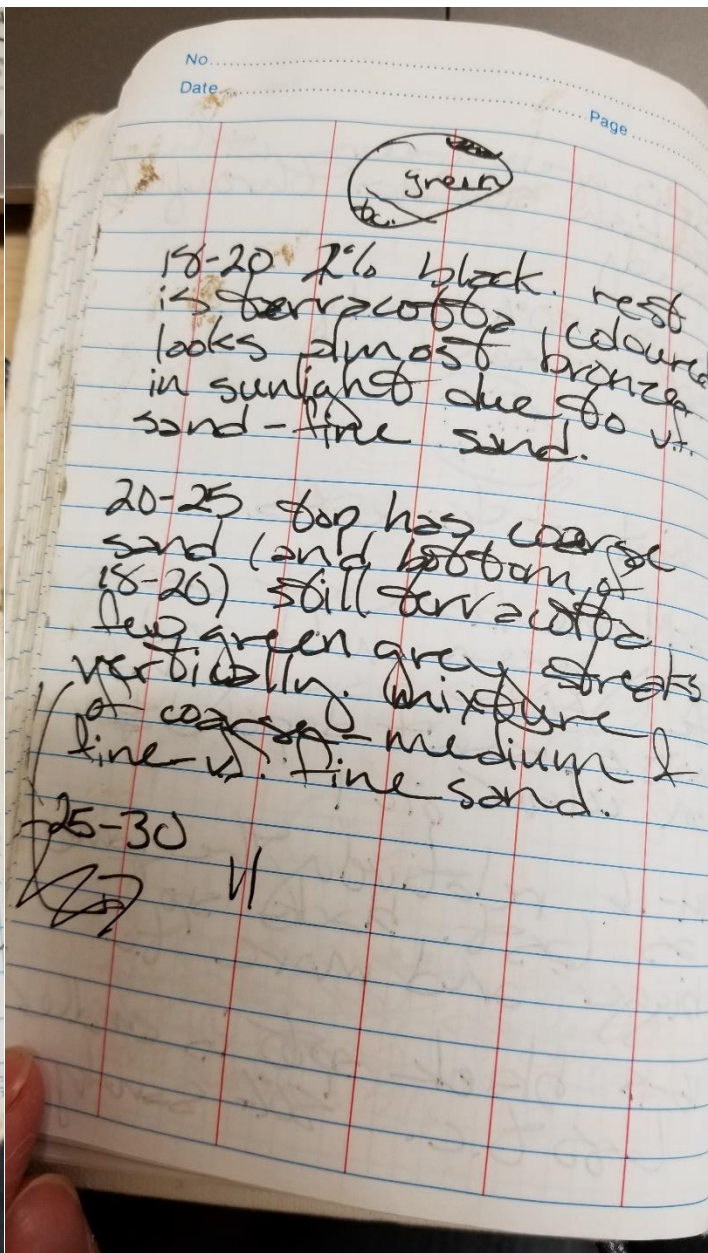 No.
Date
Page
green
t.c.
18-20 2% black. rest
is terracotta coloured
looks almost bronze
in sunlight due to v.f.
sand-fine sand.
20-25 top has coarse
sand (and bottom of
18-20) still terracotta
few green grey streaks
vertically. mixture
of coarse-medium &
fine-v. fine sand.
25-30 \/|